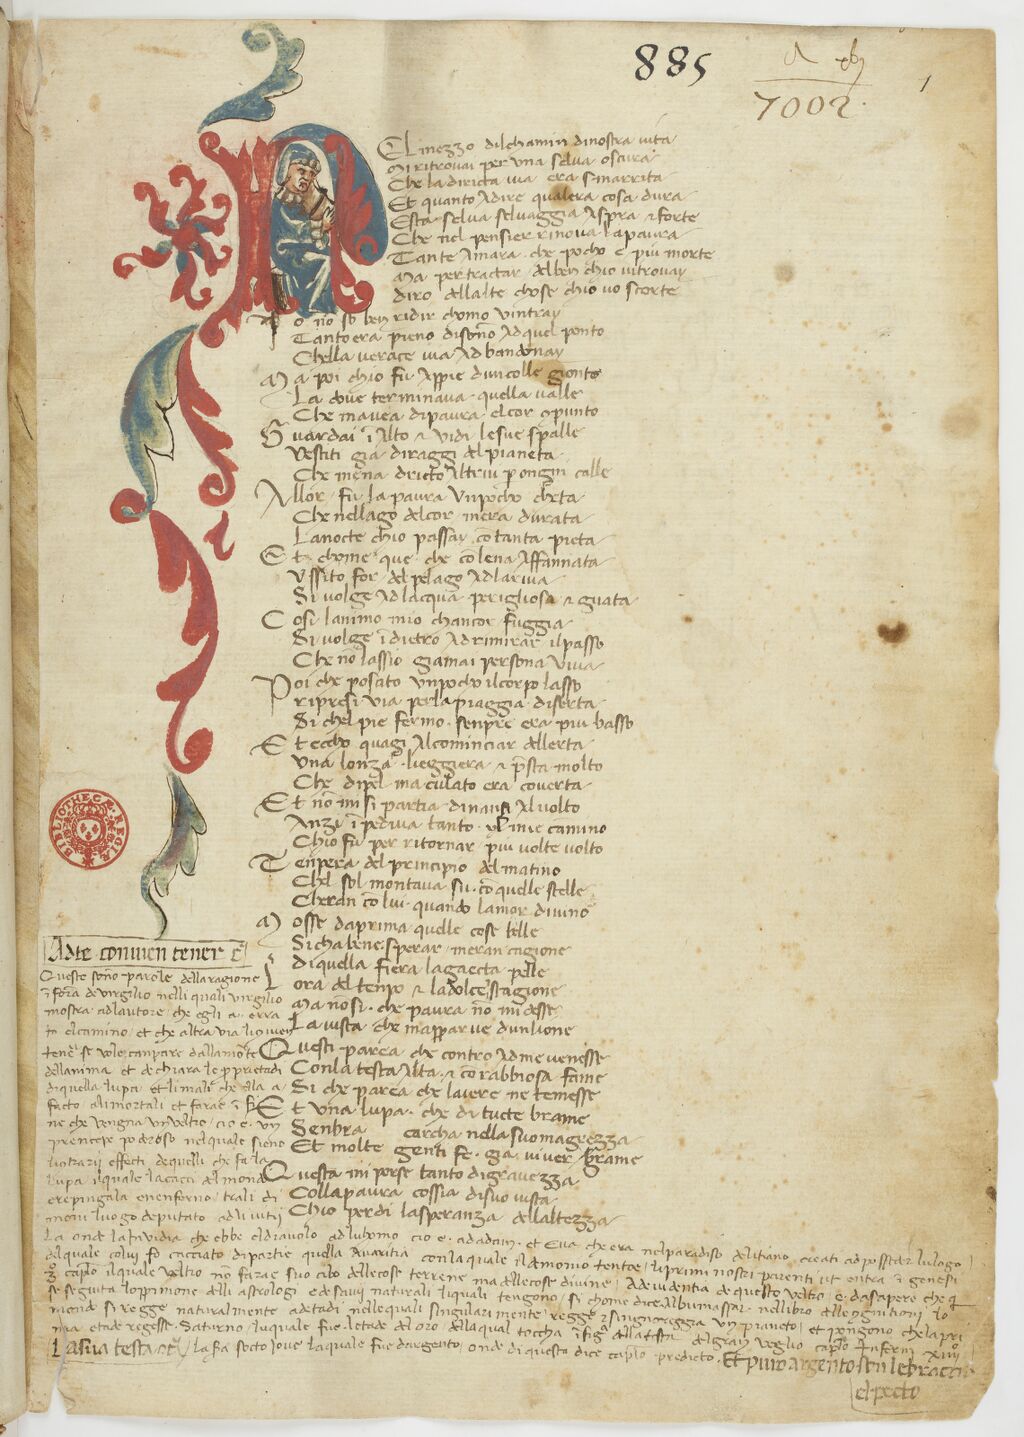 885
a
7002
1
N
El mezzo dilchamin dinostra vita
Mi ritrovai per una selva oscura
Che la diricta via era smarrita
Et quanto adire qualera cosa dura
Esta selva selvaggia aspra & forte
Che nel pensier rinova lapaura
Tante amara che pocho e piu morte
Ma per tractar delben chio vitrovay
Diro dellalte chose chio vo scorte
Io nō so ben ridir chomo vintray
Tanto era pieno disōno adquel ponto
Chella verace via adbandonay
Ma poi chio fu appie duncolle gionto
La dove terminava quella valle
Che mavea dipaura elcor conpunto
Guardai ī alto & vidi lesue spalle
Vestiti gia diraggi del pianeta
Che mena dricto altrui p ongni calle
Allor fu la paura unpocho cheta
Che nellago delcor mera durata
Lanocte chio passay cō tanta pieta
Et chome que che cō lena affannata
Vssito for del pelago adlariva
Si volge adlacqua perigliosa & guata
Cosi lanimo mio chancor fuggia
Si volge īdietro adrimirar ilpasso
Che nō lassio giamai persona viva
Poi che posato unpocho ilcorpo lasso
Ripresi via perla piaggia diserta
Si chel pie fermo senpre era piu basso
Et eccho quagi alcominciar dellerta
Una lonza leggiera & p̄sta molto
Che dipel maculato era coverta
Et nō mi si partia dinanzi alvolto
Anzi īpediva tanto el mie camino
Chio fu per ritornar piu volte volto
Tenpera del principio del matino
Chel sol montava su cō quelle stelle
Cheran cō lui quando lamor divino
Mosse daprima quelle cose belle
Sicha bene sperar meran cagione
Diquella fiera lagaecta pelle
Lora del tenpo & la dolce stagione
Ma nō si che paura nō mi desse
La vista che mapparve dunlione
Questi parea che contro adme venesse
Conla testa alta & cō rabbiosa fame
Si che parea che laiere ne temesse
Et una lupa che di tucte brame
Senbra carcha nella suo magrezza
Et molte genti fe gia viver grame
Questa mi porse tanto digravezza
Collapaura cossia disuo vista
Chio perdi lasperanza dellaltezza
BIBLIOTHECÆ REGIÆ
Adte convien tener &c
Queste sono parole dellaragione
ī forā de virgilio nelli quali virgilio
mostra adlautore che egli a errato
elcamino et che altra via li convien
tenē se vole canpare dallamorte
dellanima et dechiara le pprieta di
diquella lupa et li mali che ella a
facto alimortali et farae ī fi
ne che vengna un veltro cio e un
prencepe poderoso nelquale sieno
contrarij effecti dequelli che fa la
lupa ilquale lacacci del mondo
erepingala enenferno trali di
moni luogo deputato adli vitij
La onde la Invidia che ebbe eldiavolo adluhomo cio e adadam et Eva che era nelparadiso delitiano creati adposseder luluogo
delquale colui fo cacciato dipartie quella avaritia conlaquale il demonio tentoe li primi nostri parenti ut entra ī genesi
3º caplo ilquale veltro nō farae suo cibo dellecose terrene ma dellecose divine Adevidentia de questo veltro e dasapere che q
se seguita loppinione delli astrologi & de savij naturali liquali tengono si chome dice Albumassar nellibro delle cognitioni lo
mondo si regge naturalmente adetadi nellequali singularmente regge & singnoreggia un pianeto et pongono chelapri
ma etade regesse Saturno luquale fue letade del oro della qual toccha ī fig̃ della testa del gran veglio caplo Inferni xiiijº
La sua testa &c la s̄a secto Jove laquale fue dargento onde di questa dice caplo predicto Et puro argento son le braccia
el pecto